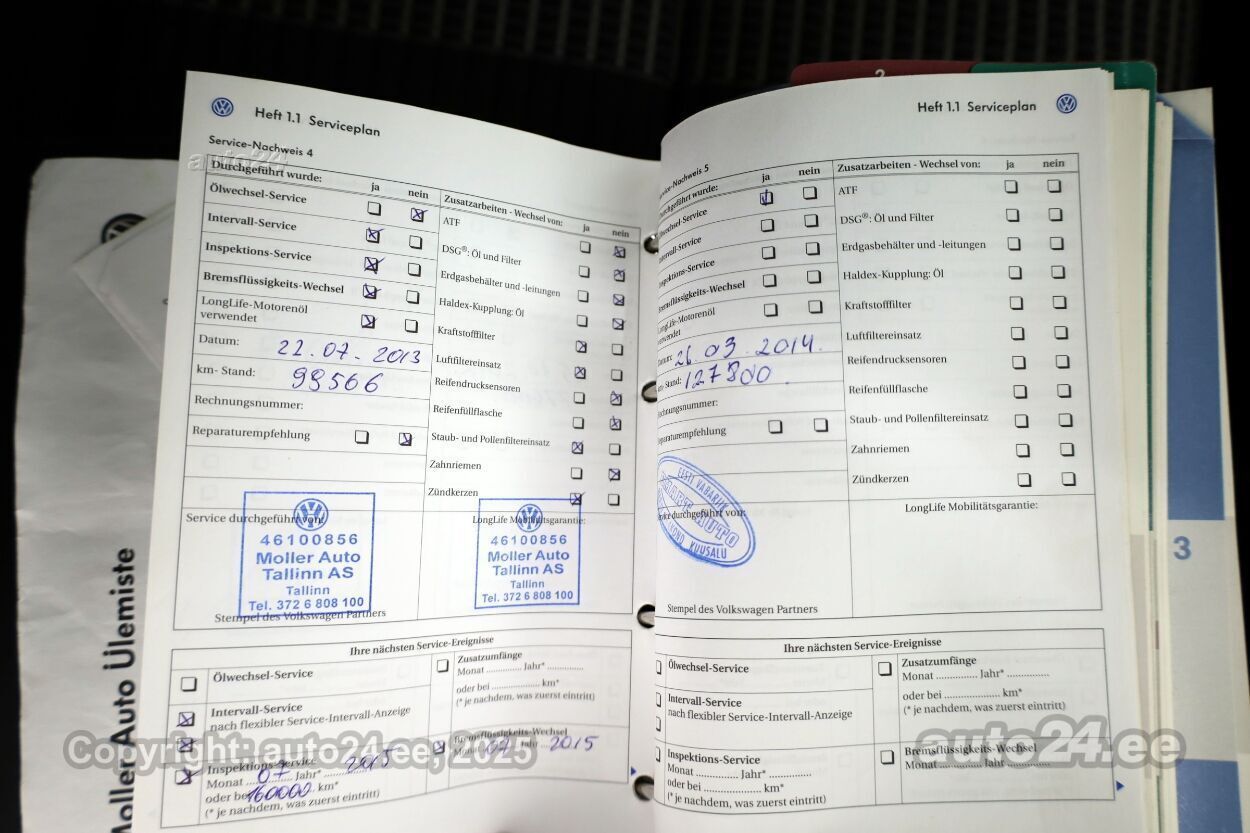 Heft 1.1 Serviceplan
Service-Nachweis 4
auto24
Durchgeführt wurde: ja nein
Ölwechsel-Service
Intervall-Service
Inspektions-Service
Bremsflüssigkeits-Wechsel
LongLife-Motorenöl
verwendet
Datum: 22.07.2013
km- Stand: 99566
Rechnungsnummer:
Reparaturempfehlung
Zusatzarbeiten - Wechsel von: ja nein
ATF
DSG®: Öl und Filter
Erdgasbehälter und -leitungen
Haldex-Kupplung: Öl
Kraftstofffilter
Luftfiltereinsatz
Reifendrucksensoren
Reifenfüllflasche
Staub- und Pollenfiltereinsatz
Zahnriemen
Zündkerzen
Service durchgeführt von:
46100856
Moller Auto
Tallinn AS
Tallinn
Tel. 372 6 808 100
Stempel des Volkswagen Partners
LongLife Mobilitätsgarantie:
46100856
Moller Auto
Tallinn AS
Tallinn
Tel. 372 6 808 100
Ihre nächsten Service-Ereignisse
Ölwechsel-Service
Intervall-Service
nach flexibler Service-Intervall-Anzeige
Inspektions-Service
Monat 07 Jahr* 2015
oder bei 160000 km*
(* je nachdem, was zuerst eintritt)
Zusatzumfänge
Monat .............. Jahr* ..............
oder bei .................... km*
(* je nachdem, was zuerst eintritt)
Bremsflüssigkeits-Wechsel
Monat 07 Jahr 2015
Heft 1.1 Serviceplan
Service-Nachweis 5
Durchgeführt wurde: ja nein
Ölwechsel-Service
Intervall-Service
Inspektions-Service
Bremsflüssigkeits-Wechsel
LongLife-Motorenöl
verwendet
Datum: 26.03.2014.
km- Stand: 127800.
Rechnungsnummer:
Reparaturempfehlung
Zusatzarbeiten - Wechsel von: ja nein
ATF
DSG®: Öl und Filter
Erdgasbehälter und -leitungen
Haldex-Kupplung: Öl
Kraftstofffilter
Luftfiltereinsatz
Reifendrucksensoren
Reifenfüllflasche
Staub- und Pollenfiltereinsatz
Zahnriemen
Zündkerzen
Service durchgeführt von:
EESTI VABARIIK
AUTO
KUUSALU
Stempel des Volkswagen Partners
LongLife Mobilitätsgarantie:
Ihre nächsten Service-Ereignisse
Ölwechsel-Service
Intervall-Service
nach flexibler Service-Intervall-Anzeige
Inspektions-Service
Monat .............. Jahr* ..............
oder bei .................... km*
(* je nachdem, was zuerst eintritt)
Zusatzumfänge
Monat .............. Jahr* ..............
oder bei .................... km*
(* je nachdem, was zuerst eintritt)
Bremsflüssigkeits-Wechsel
Monat .............. Jahr ..............
3
Moller Auto Ülemiste
Copyright: auto24.ee, 2025
auto24.ee